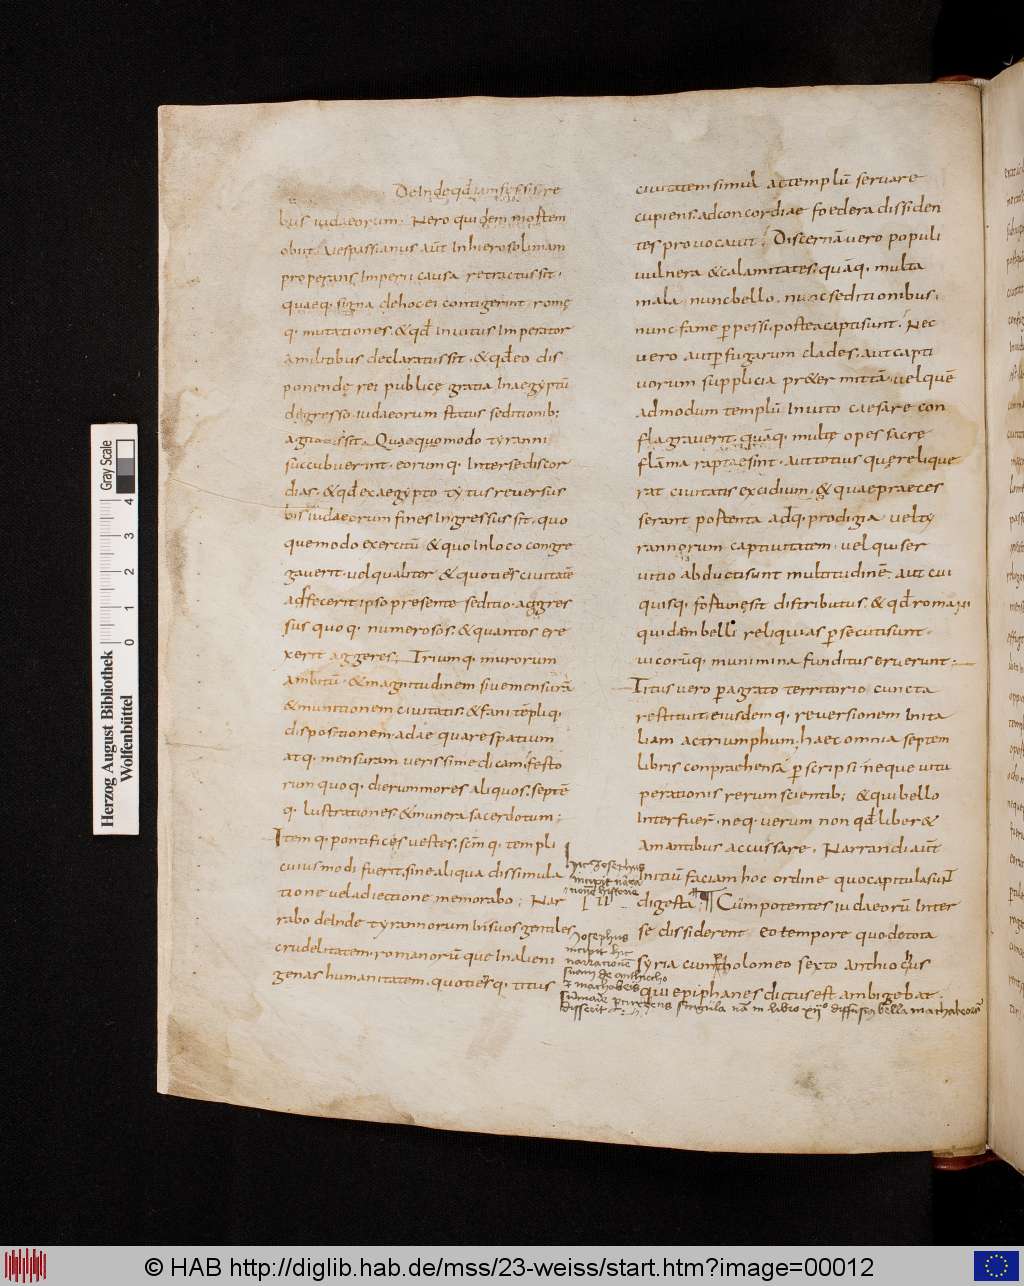 Deinde qđ iam fessis re
bus iudaeorum. Nero quidem mortem
obiit. Vespassianus aūt In hierosolimam
properans Imperii causa retractus sit.
quaeq. signa de hoc ei contigerint. romę
q. mutationes. & qđ Invitus Imperator
a militibus declaratus sit. & qđ eo dis
ponendę rei publicę gratia In aegyptū
degresso. iudaeorum status seditionib;
Quaequomodo tyranni
succubuerint. eorumq. Inter se discor
dias. & qđ ex aegypto tytus reversus
bis iudaeorum fines Ingressus sit. quo
quemodo exercitū & quo In loco congre
gaverit. vel qualiter & quotiens civitatē
adfecerit ipso presente seditio. aggres
sus quoq. numerosos. & quantos ere
xerit aggeres. Triumq. murorum
ambitū. & magnitudinem sive mensurā
& munitionem civitatis. & fani tēpliq.
dispositionem. ad ae quare spatium
atq. mensuram verissime dicam. festo
rum quoq. dierum mores aliquos. septē
q. lustrationes. & munera sacerdotum;
Itemq. pontifices vestes. scīmq. templi
cuiusmodi fuerit. sine aliqua dissimula
tione vel adiectione memorabo; Nar
rabo deInde tyrannorum In suos gentiles
crudelitatem. romanorū que In alieni
genas humanitatem. quotiensq. titus
civitatem simul ac templū servare
cupiens. ad concordiae foedera dissiden
tes provocavit. Discernā vero populi
vulnera & calamitates. quāq. multa
mala. nunc bello. nunc seditionibus.
nunc fame p̄pessi. postea capti sunt. Nec
vero aut p̄fugarum clades. aut capti
vorum supplicia pr&ermittā. vel quē
admodum templū Invito caesare con
flagraverit. quāq. multę opes sacre
flāma raptae sint. aut totius quę relique
rat civitatis excidium. & quae praeces
serant postenta adq. prodigia. vel ty
rannorum captivitatem. vel qui ser
vitio abducti sunt multitudinē. aut cui
quisq. fortunę sit distributus. & qđ romani
quidem belli reliquias p̄secuti sunt.
vicorūq. munimina funditus eruerunt;
Titus vero p̄agrato territorio cuncta
restituit. eiusdemq. reversionem In ita
liam ac triumphum. haec omnia septem
libris conpraehensa p̄scripsi. neque vitu
perationis rerum scientib; & qui bello
Interfuer̄. neq. verum non qđ liber &
amantibus accussare. Narrandi aūt
initiū faciam hoc ordine quo capitula sunt
digesta. ¶ Cūm potentes iudaeorū Inter
se dissiderent eo tempore quo de tota
syria cum ptholomeo sexto anthiochus
qui epiphanes dictus est ambigebat.
hic Josephus
incipit narra
tionē historie
Josephus
incipit hic
narrationē
suam de anthiocho
& machabeis
disserit
singula nā in libro xij° diffusius bella machabeorū
Herzog August Bibliothek
Wolfenbüttel
0 1 2 3 4
Gray Scale
© HAB http://diglib.hab.de/mss/23-weiss/start.htm?image=00012